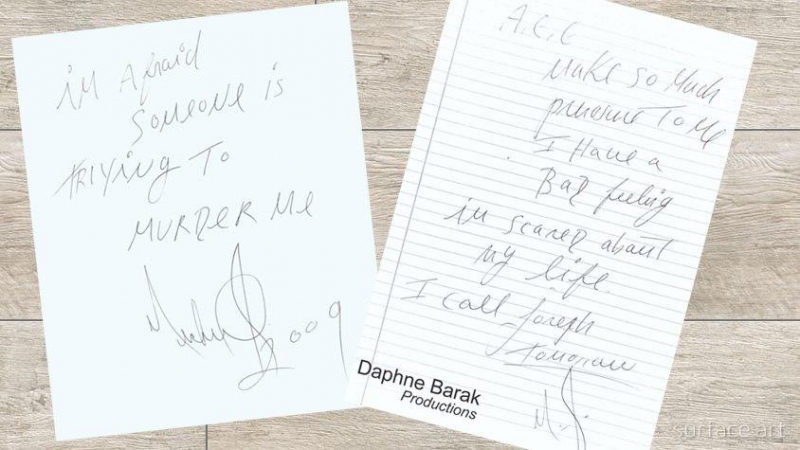 iM Afraid
SOMEONE is
TRIYING TO
MURDER ME
2009
A.E.G
MAKE SO MUCH
TO ME
I HAVE a
BAD feeling
iM SCARED about
My life
I call Joseph
TOMORROW
M.J.
Daphne Barak
Productions
surface art